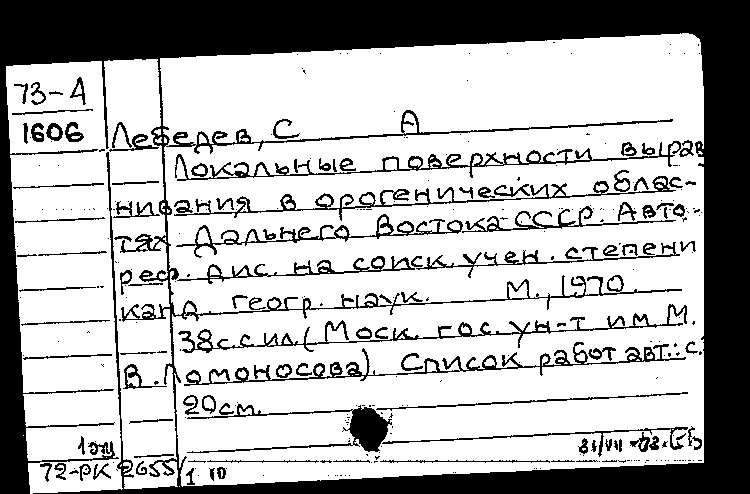 73-А
1606 Лебедев, С А
Локальные поверхности вырав
нивания в орогенических облас-
тях Дальнего Востока СССР. Авто-
реф. дис. на соиск. учен. степени
канд. геогр. наук. М., 1970.
38с.с ил. (Моск. гос. ун-т им. М.
В. Ломоносова). Список работ авт.: с.
20см.
1 экз
72-РК 2655/1